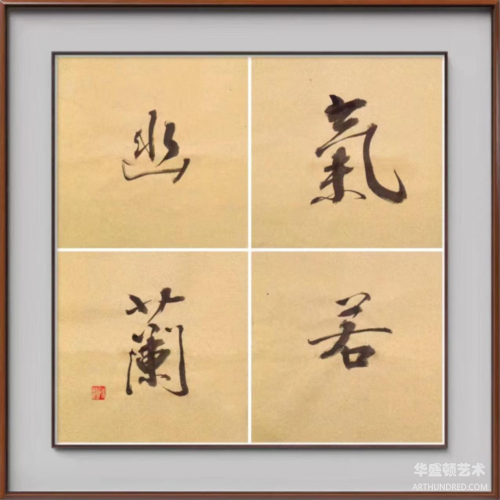 氣若
幽蘭
华盛顿艺术
ARTHUNDRED.COM